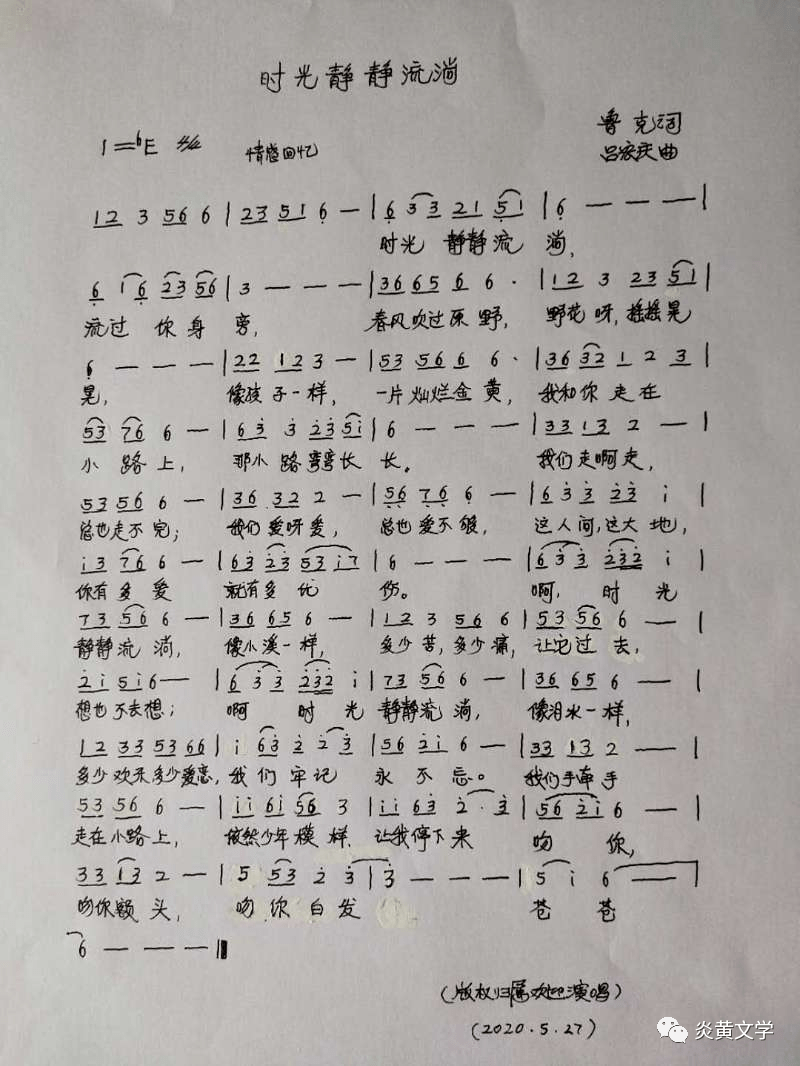 时光静静流淌
1=♭E 4/4 情感回忆
鲁克词
吕宏庆曲
12 3 56 6 | 23 51 6 — | 6 33 21 51 | 6 — — — |
时光 静静流 淌,
6 16 23 56 | 3 — — — | 36 65 6 6 · | 12 3 23 51 |
流过你身 旁, 春风吹过原 野, 野花呀,摇摇晃
6 — — — | 22 12 3 — | 53 56 6 6 · | 36 32 1 2 3 |
晃, 像孩子一样, 一片灿烂金 黄, 我和你走在
53 76 6 — | 63 3 23 51 | 6 — — — | 33 13 2 — |
小路上, 那小路弯弯长 长。 我们走啊走,
53 56 6 — | 36 32 2 — | 56 76 6 — | 63 3 23 1 |
总也走不完; 我们爱呀爱, 总也爱不够, 这人间,这大地,
13 76 6 — | 63 23 53 17 | 6 — — — | 63 3 232 1 |
你有多爱 就有多忧 伤。 啊, 时光
73 56 6 — | 36 65 6 — | 12 3 56 6 | 53 56 6 — |
静静流淌, 像小溪一样, 多少苦,多少痛, 让它过去,
21 51 6 — | 6 3 3 232 1 | 73 56 6 — | 36 65 6 — |
想也不去想; 啊 时光 静静流淌, 像泪水一样,
12 33 53 66 | 1 63 2 2 3 | 56 21 6 — | 33 13 2 — |
多少欢乐多少爱恋,我们牢记 永不忘。 我们手牵手
53 56 6 — | 11 61 56 3 | 11 63 2 · 3 | 56 21 6 — |
走在小路上, 依然少年模样 让我停下来 吻你,
33 13 2 — | 5 53 2 3 | 3 — — — | 5 1 6 — |
吻你额头, 吻你白发 苍苍
6 — — — ‖
(版权归属欢迎演唱)
(2020.5.27)
炎黄文学